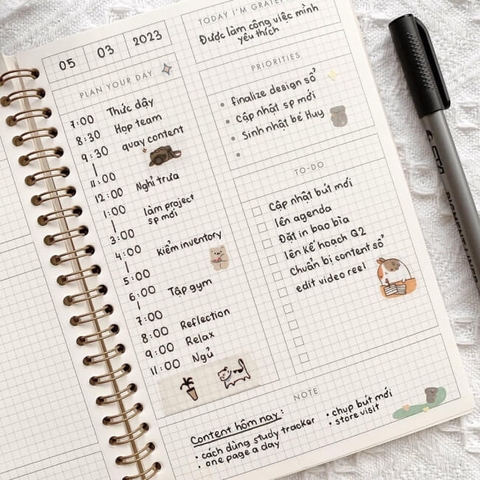 05 03 2023
TODAY I'M GRATEF
Được làm công việc mình
yêu thích
PLAN YOUR DAY
7:00 Thức dậy
8:30 Họp team
9:30 quay content
11:00
12:00 Nghỉ trưa
1:00 làm project
sp mới
3:00
4:00 kiểm inventory
5:00
6:00 Tập gym
7:00
8:00 Reflection
9:00 Relax
11:00 Ngủ
PRIORITIES
• finalize design sổ
• Cập nhật sp mới
• Sinh nhật bé Huy
TO-DO
Cập nhật bút mới
lên agenda
Đặt in bao bìa
lên kế hoạch Q2
Chuẩn bị content sổ
edit video reel
NOTE
Content hôm nay:
• cách dùng study tracker
• one page a day
• chụp bút mới
• store visit